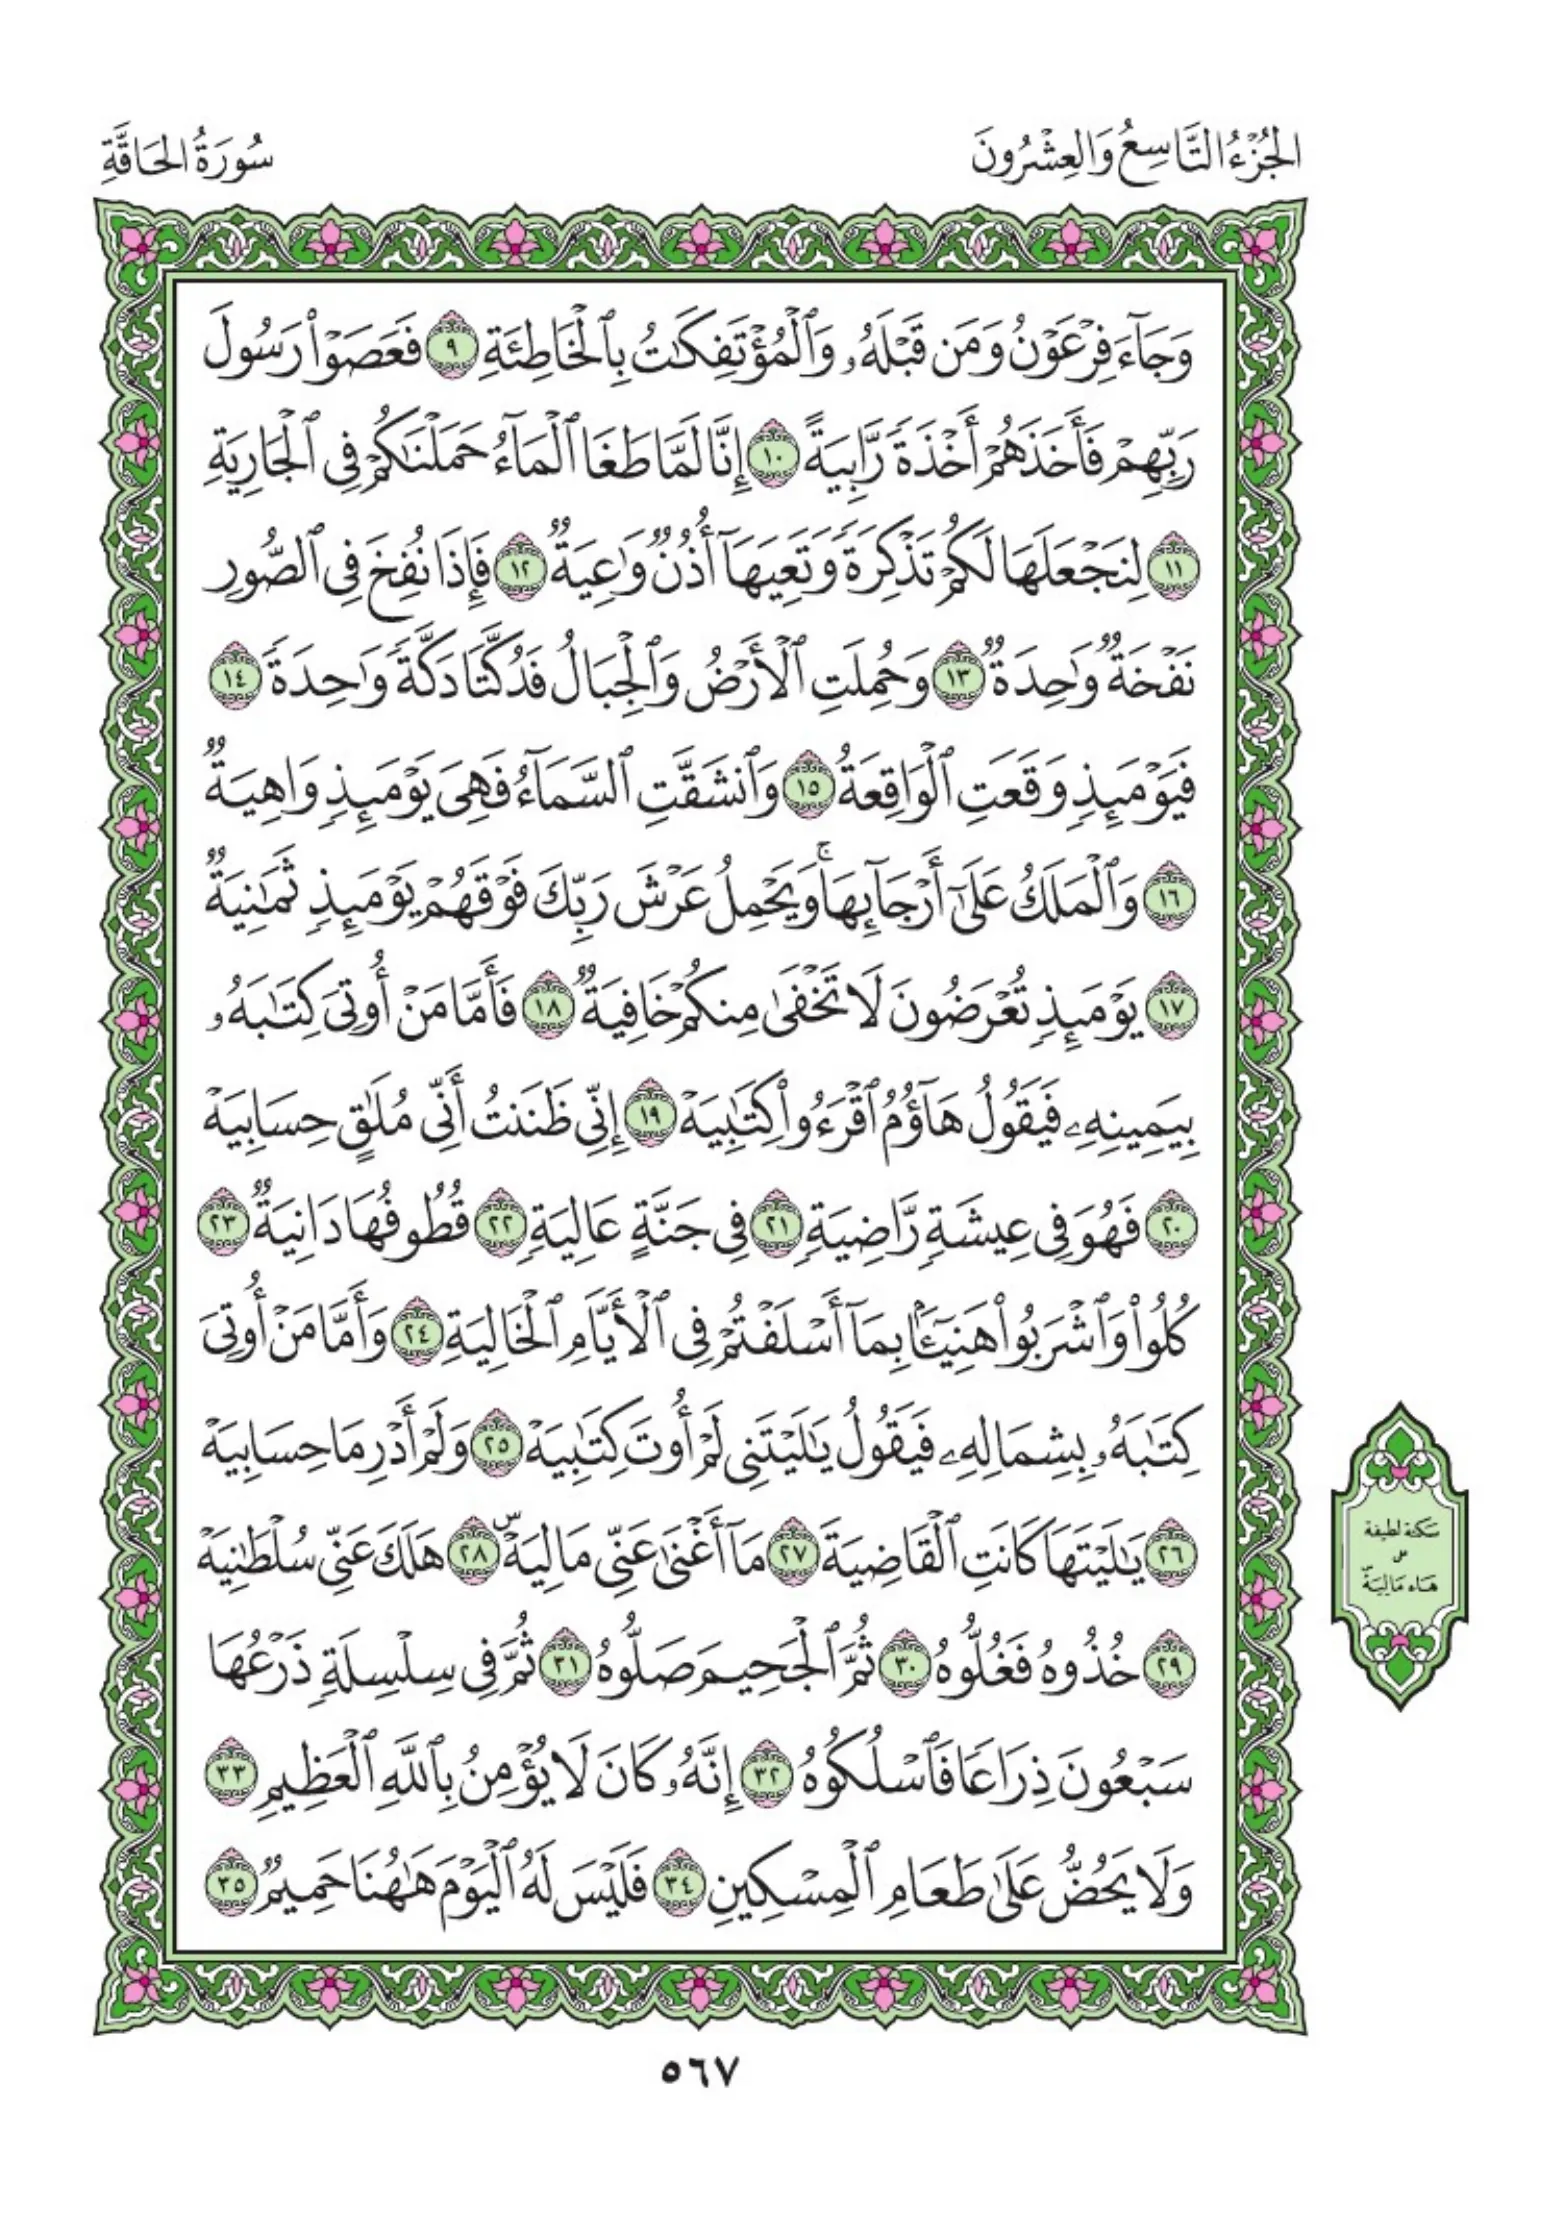 الجُزْءُ التَّاسِعُ وَالعِشْرُونَ
سُورَةُ الحَاقَّةِ
وَجَآءَ فِرْعَوْنُ وَمَن قَبْلَهُۥ وَٱلْمُؤْتَفِكَٰتُ بِٱلْخَاطِئَةِ ٩ فَعَصَوْا۟ رَسُولَ
رَبِّهِمْ فَأَخَذَهُمْ أَخْذَةً رَّابِيَةً ١٠ إِنَّا لَمَّا طَغَا ٱلْمَآءُ حَمَلْنَٰكُمْ فِى ٱلْجَارِيَةِ
١١ لِنَجْعَلَهَا لَكُمْ تَذْكِرَةً وَتَعِيَهَآ أُذُنٌ وَٰعِيَةٌ ١٢ فَإِذَا نُفِخَ فِى ٱلصُّورِ
نَفْخَةٌ وَٰحِدَةٌ ١٣ وَحُمِلَتِ ٱلْأَرْضُ وَٱلْجِبَالُ فَدُكَّتَا دَكَّةً وَٰحِدَةً ١٤
فَيَوْمَئِذٍ وَقَعَتِ ٱلْوَاقِعَةُ ١٥ وَٱنشَقَّتِ ٱلسَّمَآءُ فَهِىَ يَوْمَئِذٍ وَاهِيَةٌ
١٦ وَٱلْمَلَكُ عَلَىٰٓ أَرْجَآئِهَا ۚ وَيَحْمِلُ عَرْشَ رَبِّكَ فَوْقَهُمْ يَوْمَئِذٍ ثَمَٰنِيَةٌ
١٧ يَوْمَئِذٍ تُعْرَضُونَ لَا تَخْفَىٰ مِنكُمْ خَافِيَةٌ ١٨ فَأَمَّا مَنْ أُوتِىَ كِتَٰبَهُۥ
بِيَمِينِهِۦ فَيَقُولُ هَآؤُمُ ٱقْرَءُوا۟ كِتَٰبِيَهْ ١٩ إِنِّى ظَنَنتُ أَنِّى مُلَٰقٍ حِسَابِيَهْ
٢٠ فَهُوَ فِى عِيشَةٍ رَّاضِيَةٍ ٢١ فِى جَنَّةٍ عَالِيَةٍ ٢٢ قُطُوفُهَا دَانِيَةٌ ٢٣
كُلُوا۟ وَٱشْرَبُوا۟ هَنِيٓـًٔۢا بِمَآ أَسْلَفْتُمْ فِى ٱلْأَيَّامِ ٱلْخَالِيَةِ ٢٤ وَأَمَّا مَنْ أُوتِىَ
كِتَٰبَهُۥ بِشِمَالِهِۦ فَيَقُولُ يَٰلَيْتَنِى لَمْ أُوتَ كِتَٰبِيَهْ ٢٥ وَلَمْ أَدْرِ مَا حِسَابِيَهْ
٢٦ يَٰلَيْتَهَا كَانَتِ ٱلْقَاضِيَةَ ٢٧ مَآ أَغْنَىٰ عَنِّى مَالِيَهْ ۜ ٢٨ هَلَكَ عَنِّى سُلْطَٰنِيَهْ
٢٩ خُذُوهُ فَغُلُّوهُ ٣٠ ثُمَّ ٱلْجَحِيمَ صَلُّوهُ ٣١ ثُمَّ فِى سِلْسِلَةٍ ذَرْعُهَا
سَبْعُونَ ذِرَاعًا فَٱسْلُكُوهُ ٣٢ إِنَّهُۥ كَانَ لَا يُؤْمِنُ بِٱللَّهِ ٱلْعَظِيمِ ٣٣
وَلَا يَحُضُّ عَلَىٰ طَعَامِ ٱلْمِسْكِينِ ٣٤ فَلَيْسَ لَهُ ٱلْيَوْمَ هَٰهُنَا حَمِيمٌ ٣٥
سكتة لطيفة
على
هَاء مَالِيَهْۜ
٥٦٧